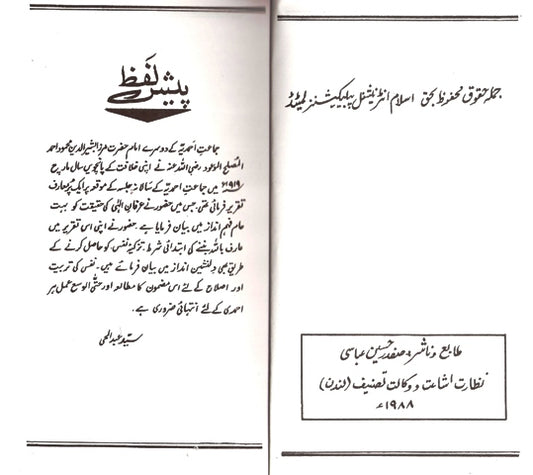 جملہ حقوق محفوظ بحق اسلام انٹرنیشنل پبلیکیشنز لمیٹڈ
طابع و ناشر: صفدر حسین عباسی
نظارت اشاعت و وکالت تصنیف (لندن)
۱۹۸۸ء
پیش لفظ
جماعت احمدیہ کے دوسرے امام حضرت مرزا بشیر الدین محمود احمد
المصلح الموعود رضی اللہ عنہ نے اپنی خلافت کے پانچویں سال مارچ
۱۹۱۹ء میں جماعت احمدیہ کے سالانہ جلسہ کے موقعہ پر ایک پُر معارف
تقریر فرمائی تھی، جس میں حضور نے عرفانِ الٰہی کی حقیقت کو بہت
عام فہم انداز میں بیان فرمایا ہے۔ حضور نے اپنی اس تقریر میں
عارف باللہ بننے کی ابتدائی شرط، تزکیۂ نفس کو حاصل کرنے کے
طریق بھی دلنشین انداز میں بیان فرمائے ہیں۔ نفس کی تربیت
اور اصلاح کے لئے اس مضمون کا مطالعہ اور حتی الوسع عمل ہر
احمدی کے لئے انتہائی ضروری ہے۔
سید عبد الحی